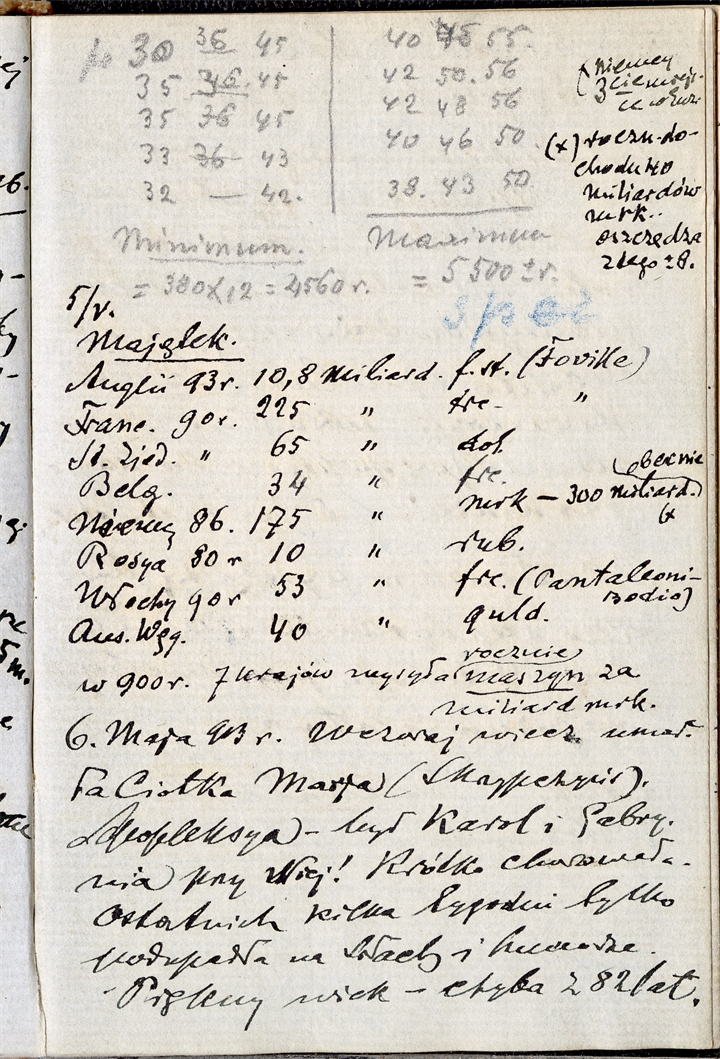 30 36 45
35 36. 45
35 36 45
33 36 43
32 — 42.
Minimum.
= 380X12 = 4560 r.
40 45 55.
42 50. 56
42 48 56
40 46 50
38. 43 50.
Maximum
= 5500 ± r.
Niemcy
(x) roczn. do-
chodu 40
miliardów
mrk.
oszczędza
5/V.
Majątek.
Anglii 93 r. 10,8 miliard. f. st. (Foville)
Franc. 90 r. 225 " frc. "
St. Zjed. " 65 " dol.
Belg. 34 " frc.
Niemcy 86. 175 " mrk — 300 miliard.
obecnie
(x
Rosya 80 r 10 " rub.
Włochy 90 r 53 " frc. (Pantaleoni-
Bodio)
Aus. Węg. 40 " guld.
rocznie
w 900 r. 7 krajów maszyn za
miliard mrk.
6. Maja 93 r. Wczoraj wiecz. umar-
ła Ciotka Marja
Apopleksya) — był Karol i Gabry.
nia przy Niej! Krótko chorowała.
Ostatnich kilka tygodni tylko
podupadła na siłach i humorze.
Piękny wiek — chyba z 82 lat.